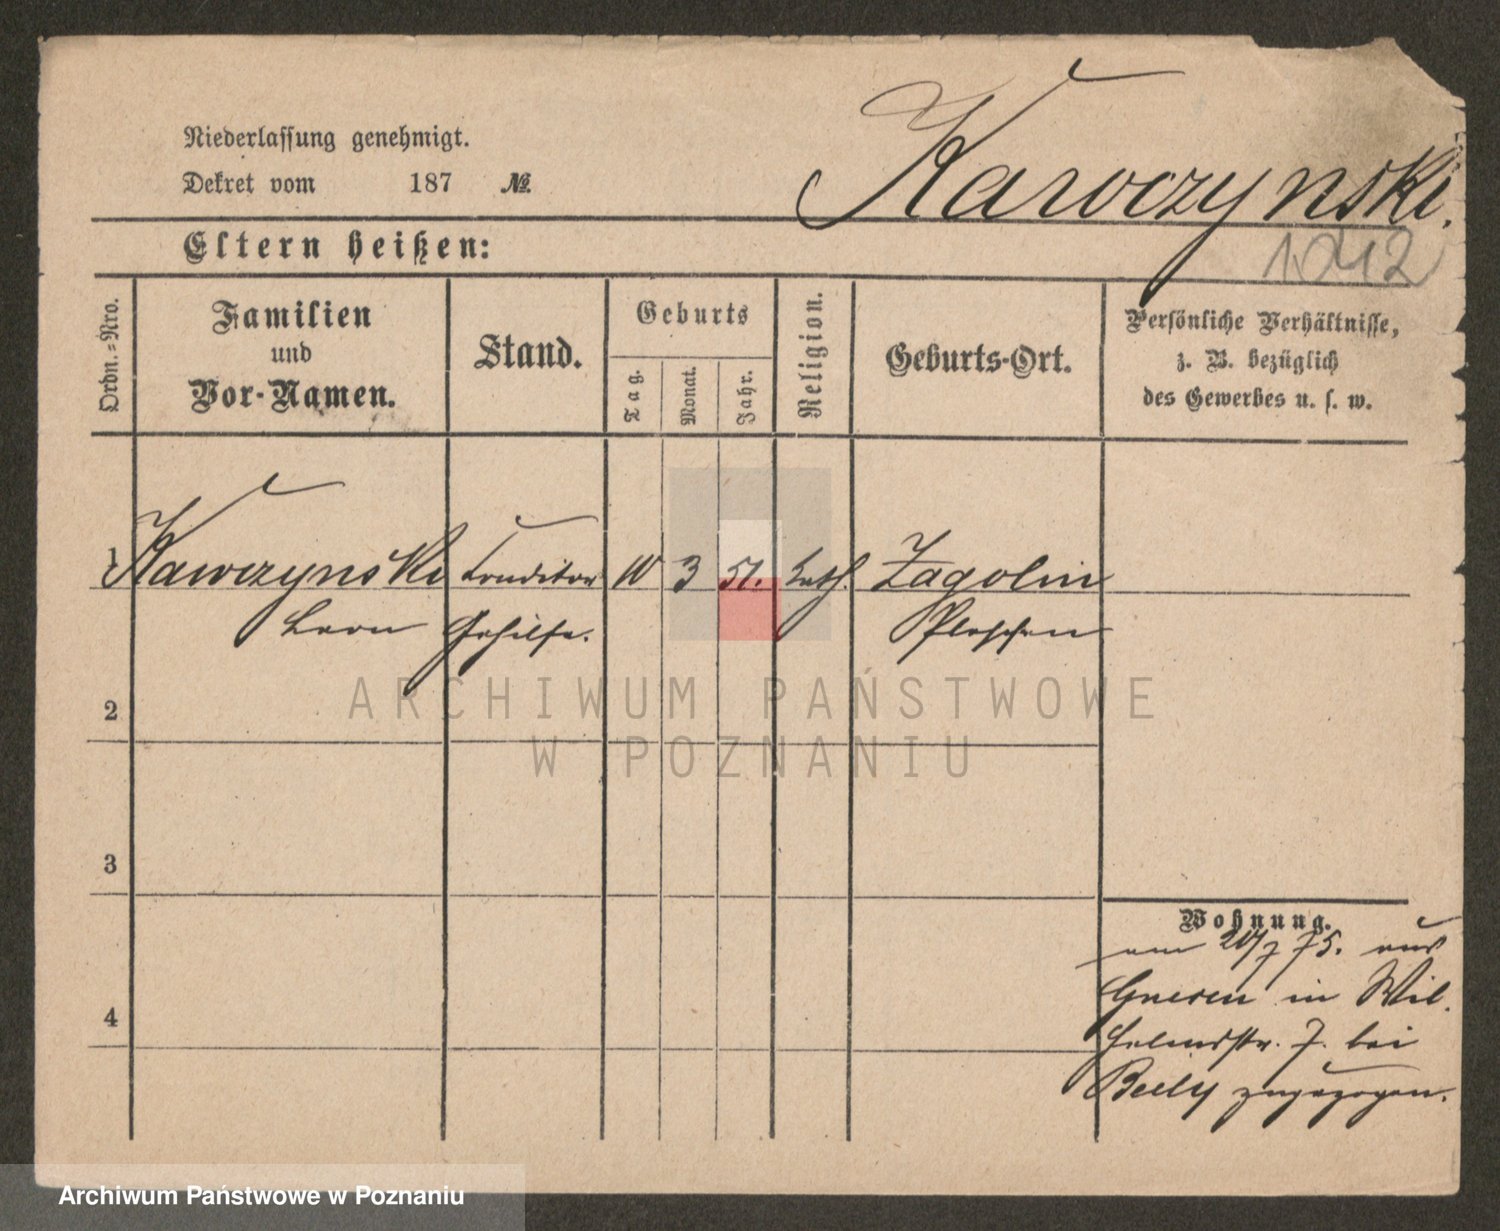 Niederlassung genehmigt.
Dekret vom 187 №.
Kawczynski.
1042
Eltern heißen:
Ordn.=Nro.
Familien
und
Vor-Namen.
Stand.
Geburts
Tag.
Monat.
Jahr.
Religion.
Geburts-Ort.
Persönliche Verhältnisse,
z. B. bezüglich
des Gewerbes u. s. w.
1 Kawczynski Conditor 10 3 51. kath. Zagolin
Leon Gehilfe. Pleschen
2
3
4
Wohnung.
am 20/7 75. aus
Gnesen in Wil.
helmstr. 7. bei
Beely zugezogen.
ARCHIWUM PAŃSTWOWE
W POZNANIU
Archiwum Państwowe w Poznaniu